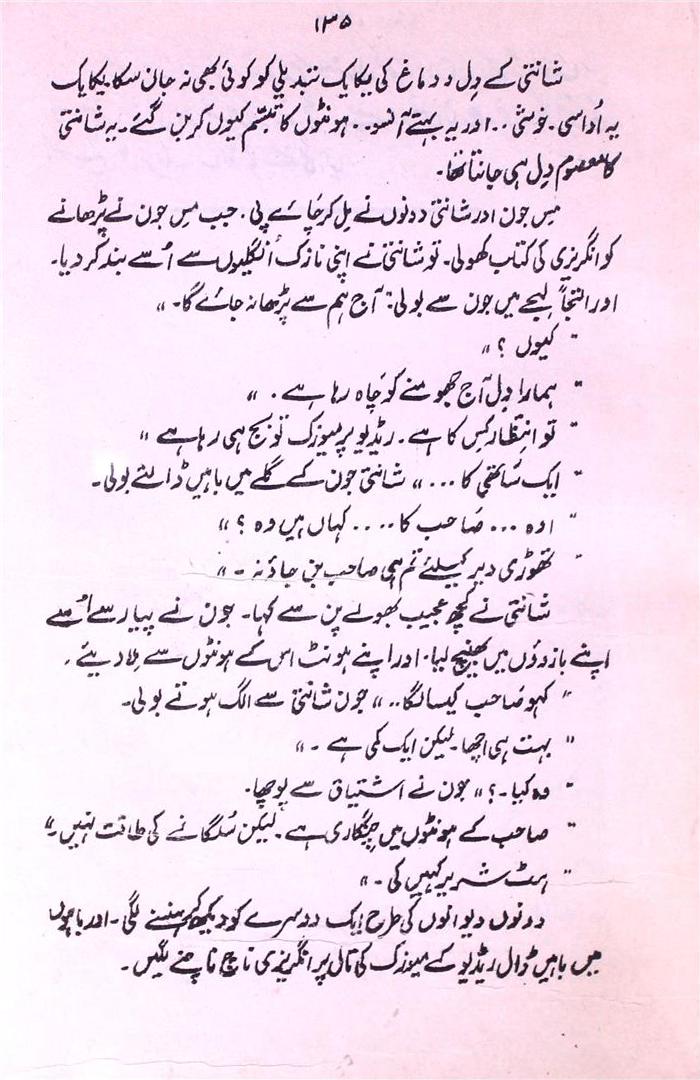 ۱۳۵
شانتی کے دِل و دماغ کی یکایک تبدیلی کو کوئی بھی نہ جان سکا یکایک
یہ اُداسی۔ خوشی ۔۔ اور یہ بہتے آنسو۔۔ ہونٹوں کا تبسّم کیوں کر بن گئے۔ یہ شانتی
کا معصوم دِل ہی جانتا تھا۔
مِس جون اور شانتی دونوں نے مِل کر چائے پی۔ جب مِس جون نے پڑھانے
کو انگریزی کی کتاب کھولی۔ تو شانتی نے اپنی نازک اُنگلیوں سے اُسے بند کر دیا۔
اور التجاً لہجے میں جون سے بولی:" آج ہم سے پڑھا نہ جائے گا۔ "
" کیوں ؟ "
" ہمارا دِل آج جھومنے کو چاہ رہا ہے ۔ "
" تو انتظار کِس کا ہے ۔ ریڈیو پر میوزک تو بج ہی رہا ہے "
" ایک ساتھی کا ۔۔۔ " شانتی جون کے گلے میں باہیں ڈالئے بولی۔
" اوہ ۔۔۔ صَاحب کا ۔۔۔۔ کہاں ہیں وہ ؟ "
" تھوڑی دیر کیلئے تم ہی صاحب بن جاؤ نہ ۔ "
شانتی نے کچھ عجیب بھولے پن سے کہا۔ جون نے پیار سے اُسے
اپنے بازوؤں میں بھینچ لیا۔ اور اپنے ہونٹ اس کے ہونٹوں سے مِلا دیئے ۔
" کہو صَاحب کیسا لگا ۔۔ " جون شانتی سے الگ ہوتے بولی۔
" بہت ہی اچھا لیکن ایک کمی ہے ۔ "
" وہ کیا ۔؟ " جون نے اشتیاق سے پوچھا۔
" صاحب کے ہونٹوں میں چنگاری ہے ۔ لیکن سُلگانے کی طاقت نہیں ۔"
" ہٹ شریر کہیں کی ۔ "
دونوں دیوانوں کی طرح ایک دوسرے کو دیکھ کر ہنسنے لگی۔ اور باہوں
میں باہیں ڈال ریڈیو کے میوزک کی تالی پر انگریزی ناچ ناچنے لگیں۔